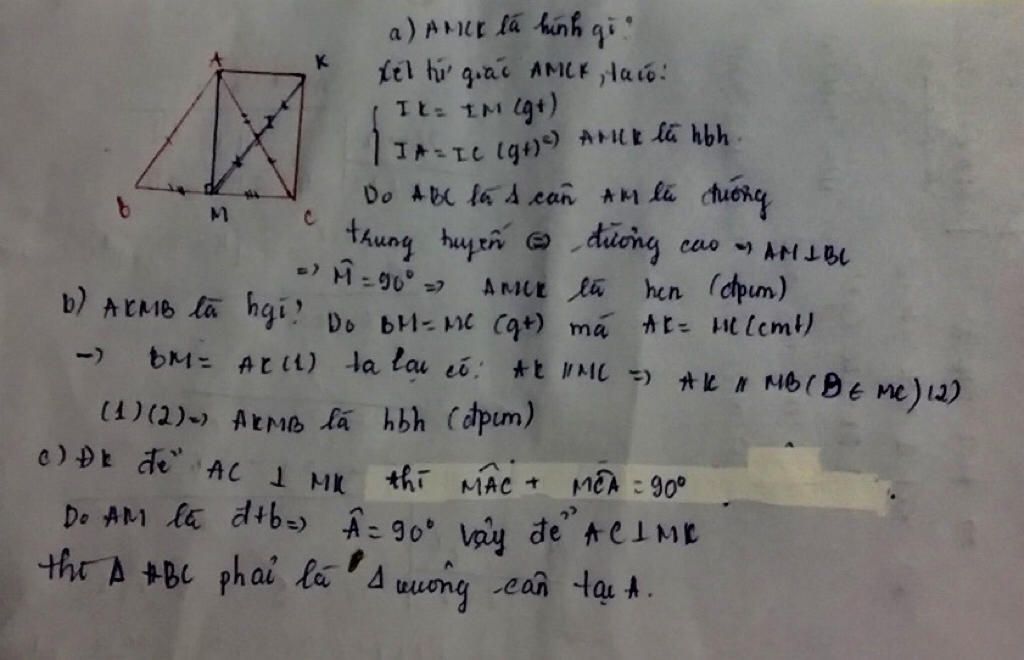 a) AMCK là hình gì?
A
K
Xét tứ giác AMCK, ta có:
IK = IM (gt)
IA = IC (gt) => AMCK là hbh.
B
M
C
Do ABC là Δ cân AM là đường
trung tuyến <=> đường cao => AM ⊥ BC
=> M̂ = 90° => AMCK là hcn (đpcm)
b) AKMB là hgì? Do BM = MC (gt) mà AK = MC (cmt)
=> BM = AK (1) ta lại có: AK // MC => AK // MB (B ∈ MC) (2)
(1)(2) => AKMB là hbh (đpcm)
c) ĐK để AC ⊥ MK thì MÂC + MĈA = 90°
Do AM là đtb => Â = 90° vậy để AC ⊥ MK
thì Δ ABC phải là Δ vuông cân tại A.